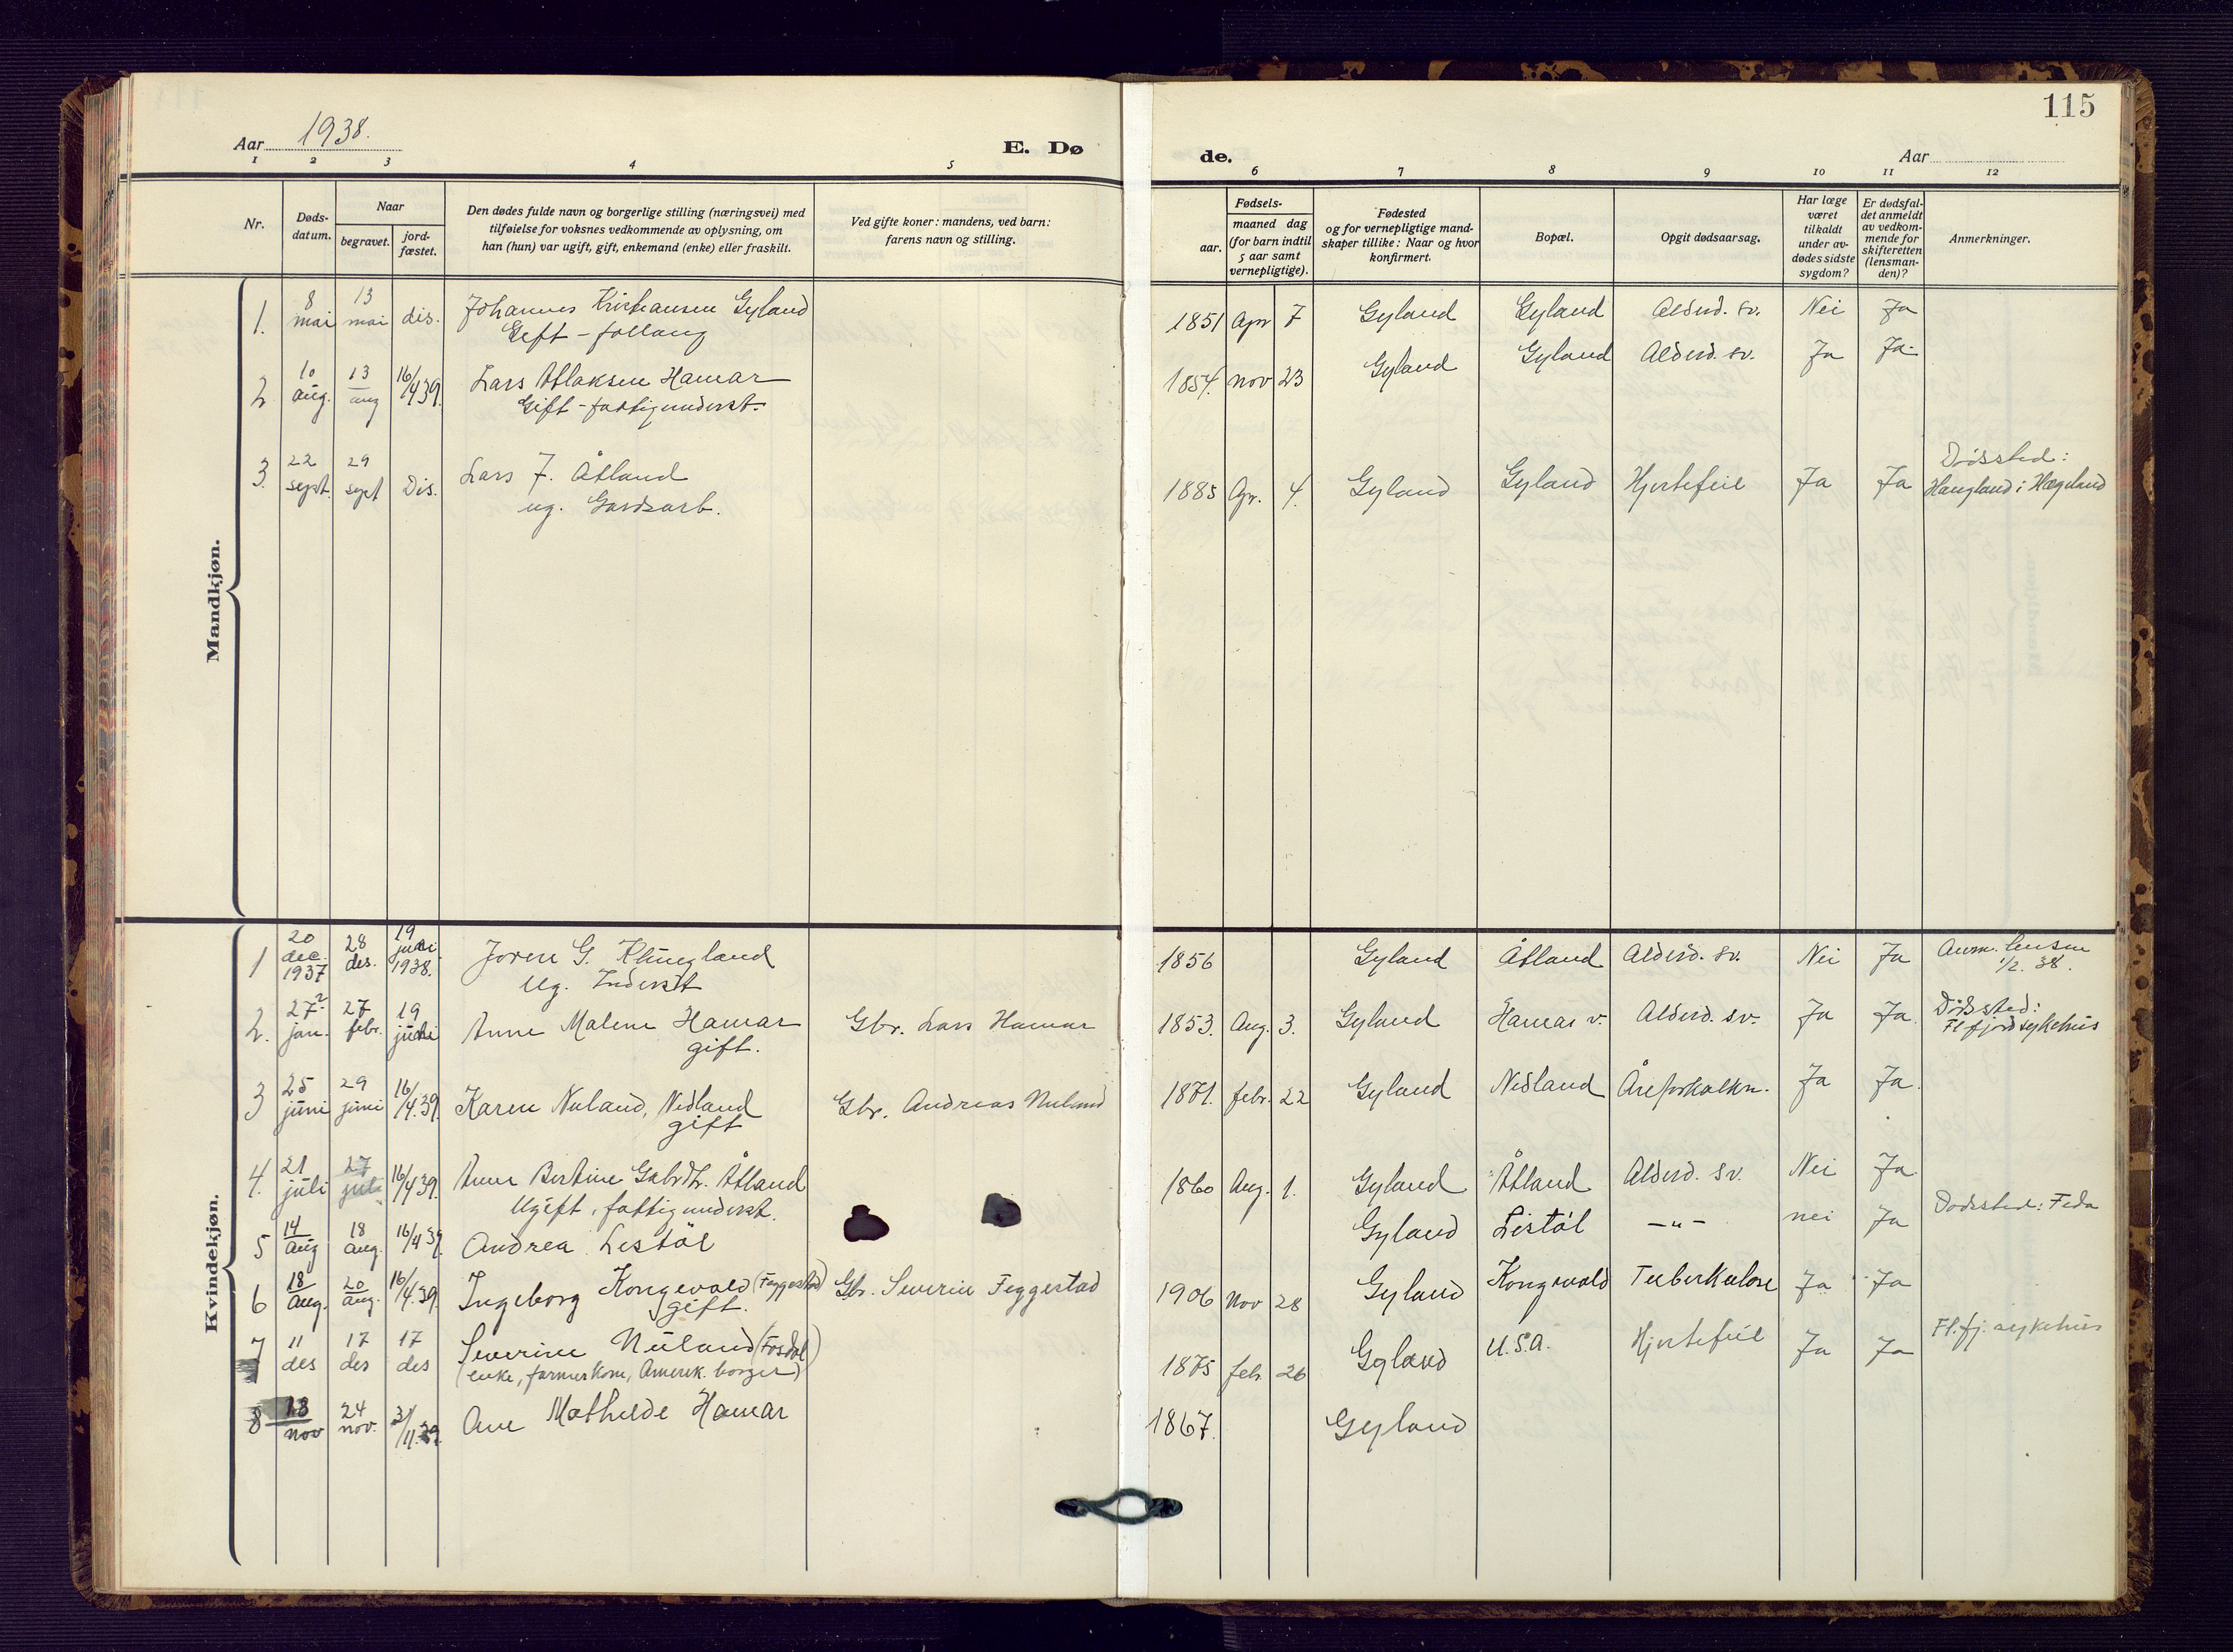 115
Aar 1938. E. Dø de. Aar
1 2 3 4 5 6 7 8 9 10 11 12
Nr.
Døds-
datum.
Naar
begravet.
jord-
fæstet.
Den dødes fulde navn og borgerlige stilling (næringsvei) med
tilføielse for voksnes vedkommende av oplysning, om
han (hun) var ugift, gift, enkemand (enke) eller fraskilt.
Ved gifte koner: mandens, ved barn:
farens navn og stilling.
Fødsels-
aar.
maaned dag
(for barn indtil
5 aar samt
vernepligtige).
Fødested
og for vernepligtige mand-
skaper tillike: Naar og hvor
konfirmert.
Bopæl.
Opgit dødsaarsag.
Har læge
været
tilkaldt
under av-
dødes sidste
sygdom?
Er dødsfal-
det anmeldt
av vedkom-
mende for
skifteretten
(lensman-
den)?
Anmerkninger.
Mandkjøn.
1. 8 mai 13 mai dis. Johannes Kristiansen Gyland 1851 Apr 7 Gyland Gyland Alderd. sv. Nei Ja
Gift - follaug
2. 10 aug. 13 aug 16/4 39. Lars Atlaksen Hamar 1854. nov 23 Gyland Gyland Alderd. sv. Ja Ja
Gift - fattigunderst.
3. 22 sept. 29 sept Dis. Lars J. Åtland 1885 Apr. 4. Gyland Gyland Hjertefeil Ja Ja Dødssted:
Haugland i Hægeland
ug. Gardsarb.
Kvindekjøn.
1 20 dec. 1937 28 des. 19 juni 1938. Joren G. Klungland 1856 Gyland Åtland Alderd. sv. Nei Ja Anm. lensm
1/2. 38.
Ug. Inderst
2. 27 jan. 27 febr. 19 juni Anne Malene Hamar Gbr. Lars Hamar 1853. Aug. 3. Gyland Hamar v. Alderd. sv. Ja Ja Dødssted:
Fl.fjord sykehus
gift.
3 25 juni 29 juni 16/4. 39. Karen Nuland, Nedland Gbr. Andreas Nuland 1871. febr. 22 Gyland Nedland Åreforkalkn. Ja Ja.
gift
4. 21 juli 27 juli 16/4 39. Anne Bertine Gabrdtr. Åtland 1860 Aug. 1. Gyland Åtland Alderd. sv. Nei Ja
Ugift, fattigunderst.
5 14 aug 18 aug. 16/4 39. Andrea Listöl Gyland Listöl -"- nei Ja Dødssted: Feda
6 18 aug. 20 aug. 16/4. 39. Ingeborg Kongevold (Feggestad) Gbr. Severin Feggestad 1906 Nov 28 Gyland Kongevold Tuberkulose Ja Ja
gift.
7 11 des 17 des 17 des Severine Nuland (Fosdal) 1875 feb. 26 Gyland U.S.A. Hjertefeil Ja Ja Fl.fj. sykehus
(enke, farmerkone, Amerik. borger)
8 18 nov 24 nov. 3/11. 39. Ane Mathilde Hamar 1867. Gyland